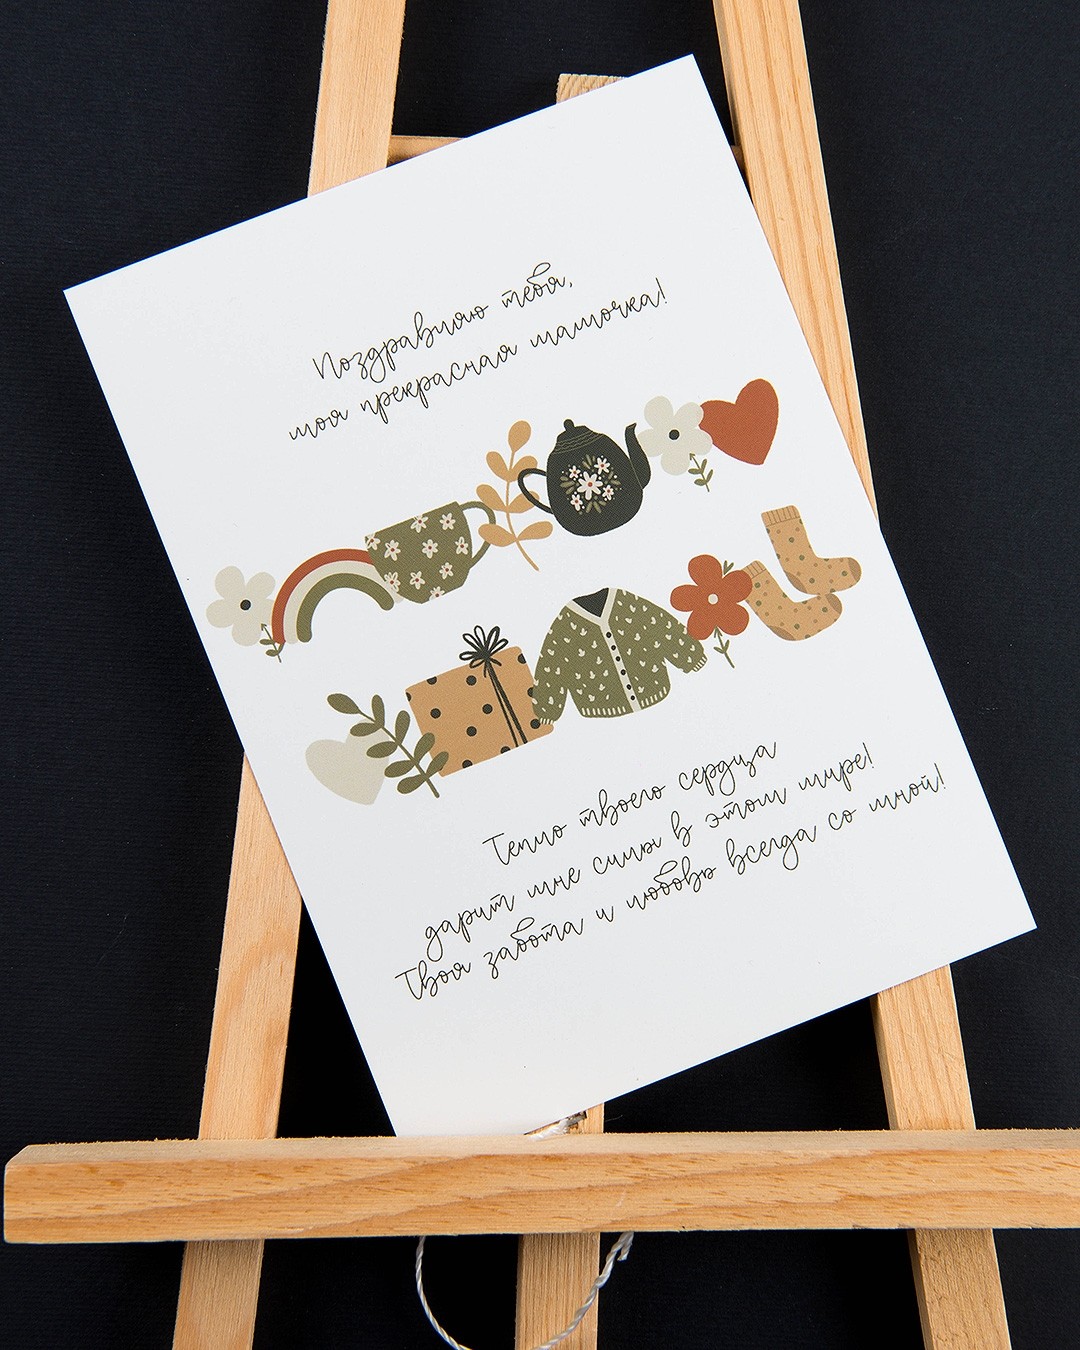 Поздравляю тебя,
моя прекрасная мамочка!
Тепло твоего сердца
дарит мне силы в этом мире!
Твоя забота и любовь всегда со мной!